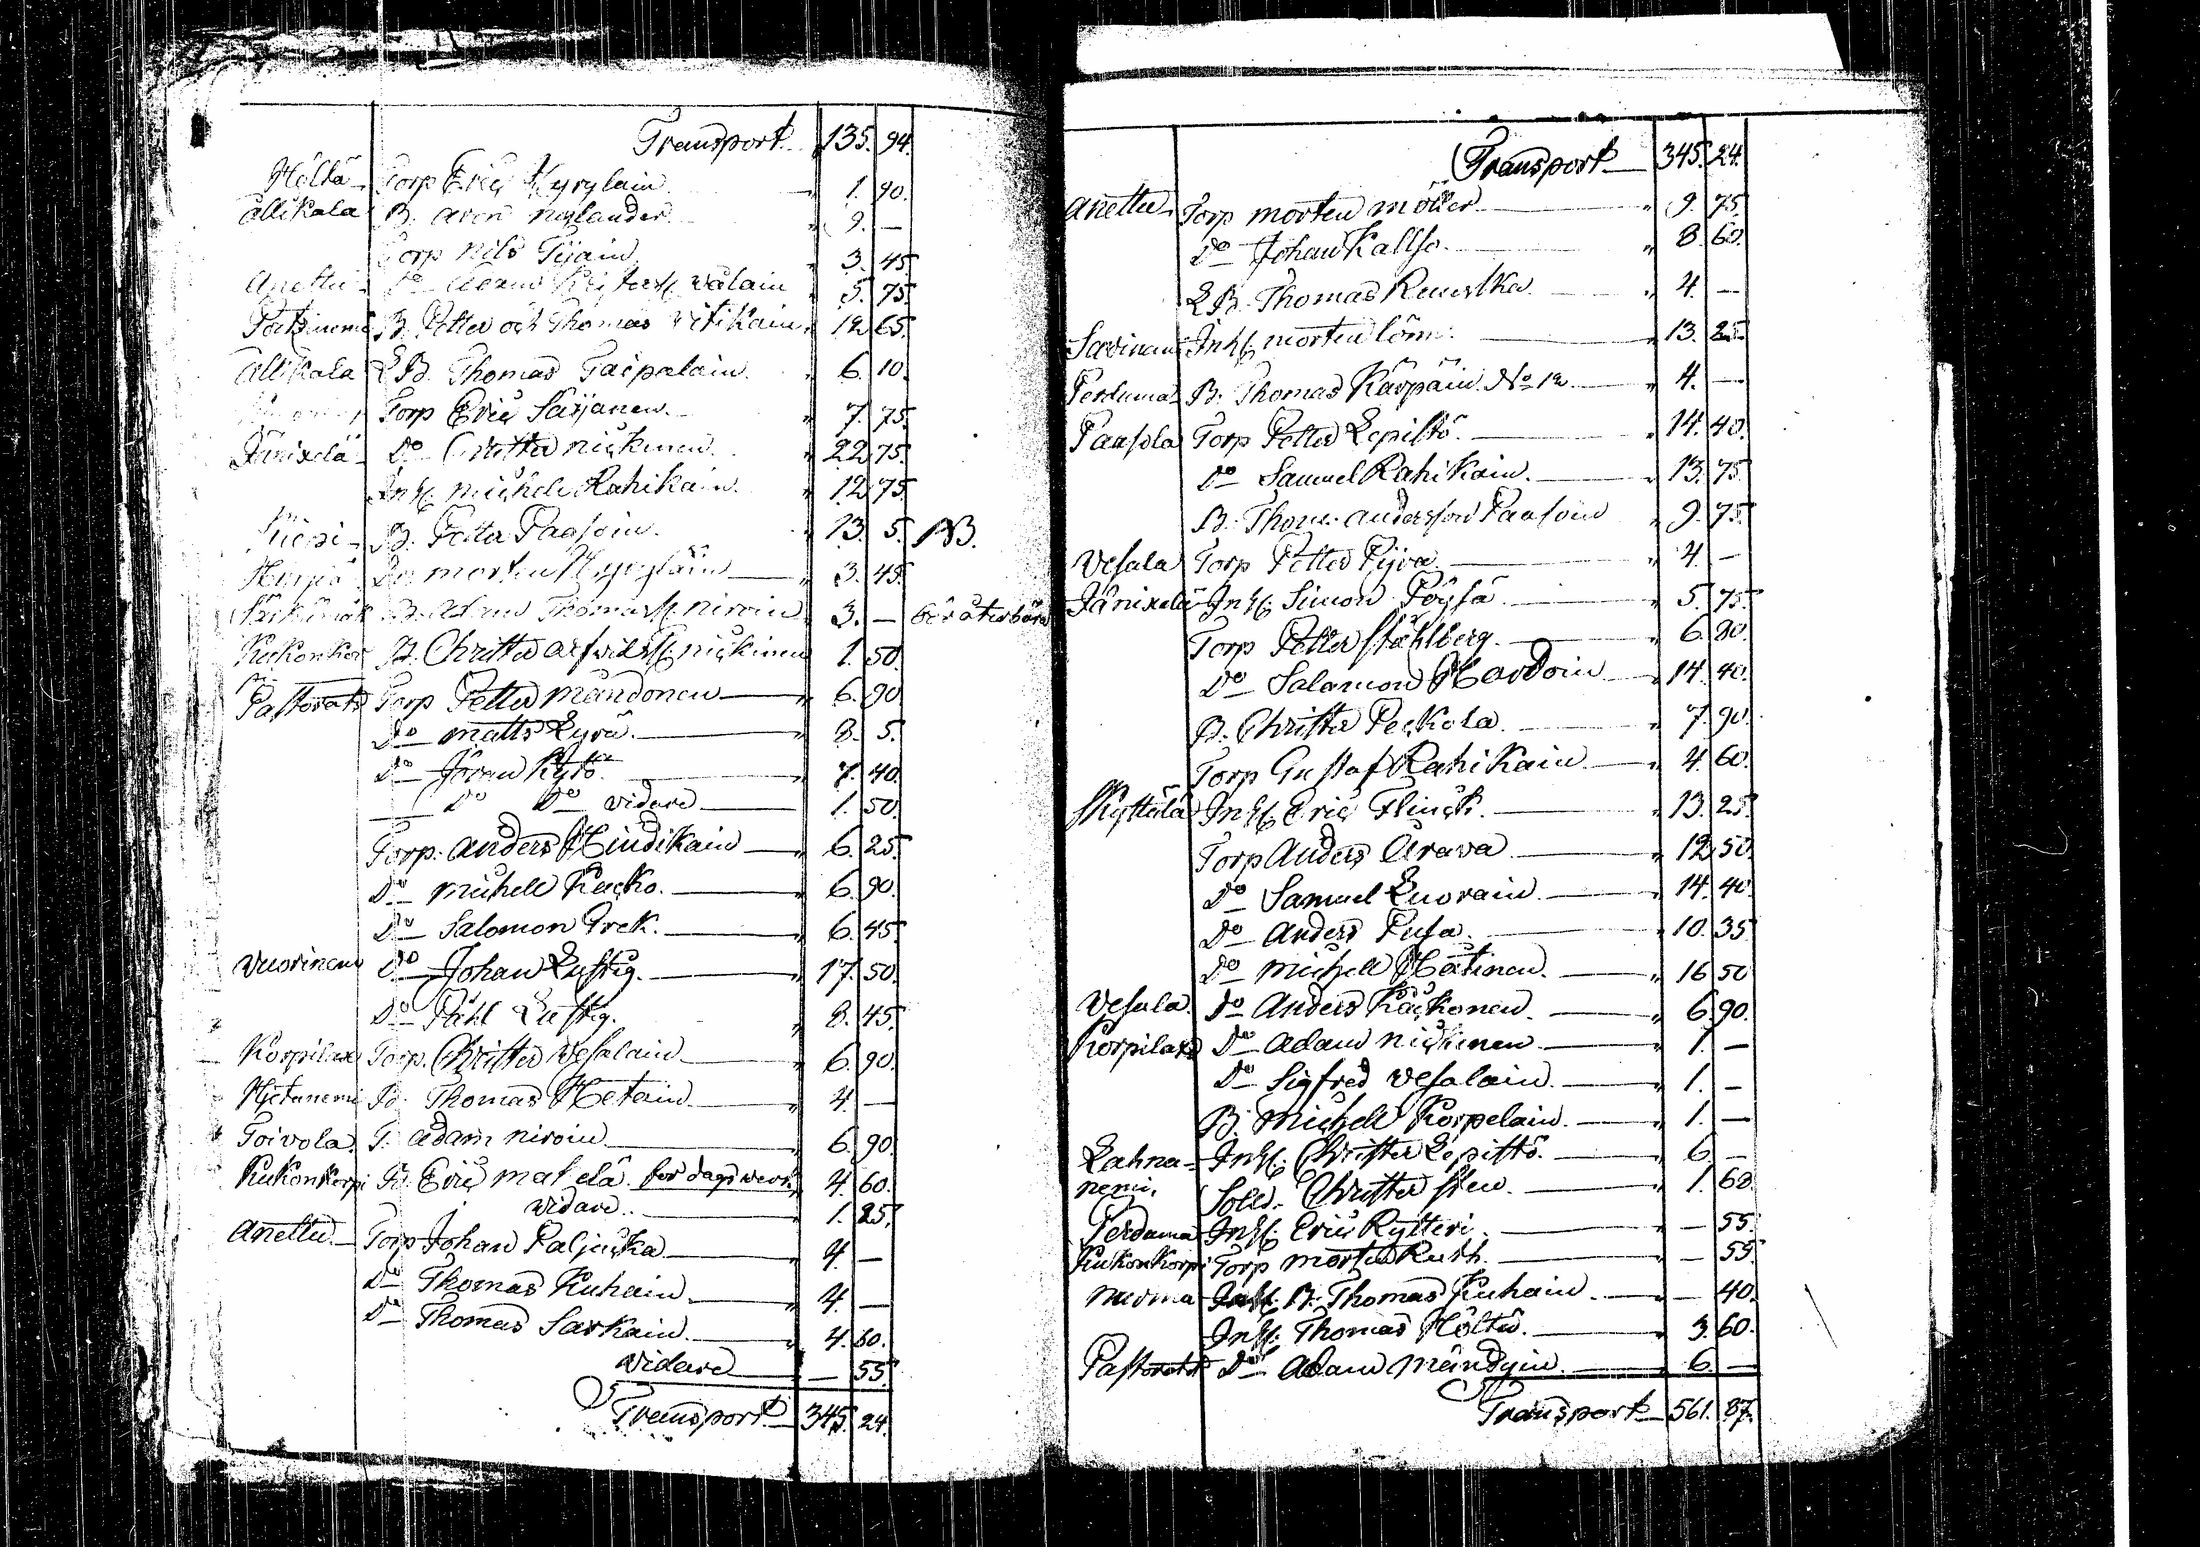 Transport 135. 94.
Höltä Torp Eric Kyrylain 1. 90.
Ollikala B. Aron Nylander 9. —
Torp Nils Tijain 3. 45
Anettu Do Adam Välain 5. 75.
B. Petter och Thomas Vitikain 12 65.
Ollikala L B. Thomas Taipalain. 6. 10.
Torp Eric Sarjanen. 7. 75.
Jänixelä Do Christer Nickinen. 22 75.
Inhs. Michell Rahikain. 12 75.
B. Petter Paasoin. 13. 5. NB.
Do Morten Kyrylain 3. 45.
B. Adam Thomass. Niroin 3. —
Kukonkor B. Christer Arfwidss. Nickinen 1. 50.
Pastorats Torp Petter Mändonen 6. 90
Do Matts Lyyrä. 8. 5.
Do Jöran Kytö 7. 40.
Do Do vidare 1. 50
Torp. Anders Hindikain 6. 25.
Do Michell Kacko. 6. 90.
Do Salomon Grek. 6. 45.
Vuorinem Do Johan Lustig. 17. 50.
Do Påhl Lustig. 8. 45.
Korpilax Torp. Christer Vesalain 6. 90.
Hietanemi B. Thomas Hetain 4. —
Toivola T. Adam Niroin 6. 90.
Kukonkorpi B. Eric Makelä för dagsverk 4. 60.
vidare. 1. 25.
Anettu Torp Johan Paljacka 4. —
Do Thomas Kuhain 4. —
Do Thomas Sarkain. 4. 60.
vidare — 55.
Transport 345. 24.
Transport 345. 24.
Anettu Torp Morten Möller 9. 75.
Do Johan Kallso. 8 60.
L B. Thomas 4. —
Savinam Inhs. Morten Löm. 13. 25
Perduma B. Thomas Kärpäin No 12 4. —
Paasola Torp Petter Lepistö. 14. 40.
Do Samuel Rahikain. 13. 75.
B. Thom. Andersson Paasoin 9. 75.
Vesala Torp Petter Pijra 4. —
Jänixelä Inhs. Simon Pöysä 5. 75.
Torp Petter Stählberg. 6. 80.
Do Salamon Hardoin 14. 40.
B. Christer Peckola. 7. 90.
Torp Gustaf Rahikain 4. 60.
Skyttilä Inhs. Eric Flinck. 13. 25.
Torp Anders Orava 12 50.
Do Samuel Luorain. 14. 40
Do Anders Pusa. 10. 35
Do Michell Hätinen. 16 50
Vesala. Do Anders Käckonen. 6. 90.
Korpilax Do Adam Nickinen 1. —
Do Sigfred Vesalain. 1. —
B. Michell Korpelain. 1. —
Lahna- Inhs. Christer Lepistö. 6 —
nemi, Sold. Christer Sten. 1. 68.
Perduma Inhs. Eric Rytteri. — 55.
Kukonkorpi Torp Morten Ruth. — 55.
B. Thomas Kuhain. — 40.
Inhs. Thomas Höltä. 3. 60.
Pastorats Do Adam Mändyin. 6. —
Transport 561. 87.